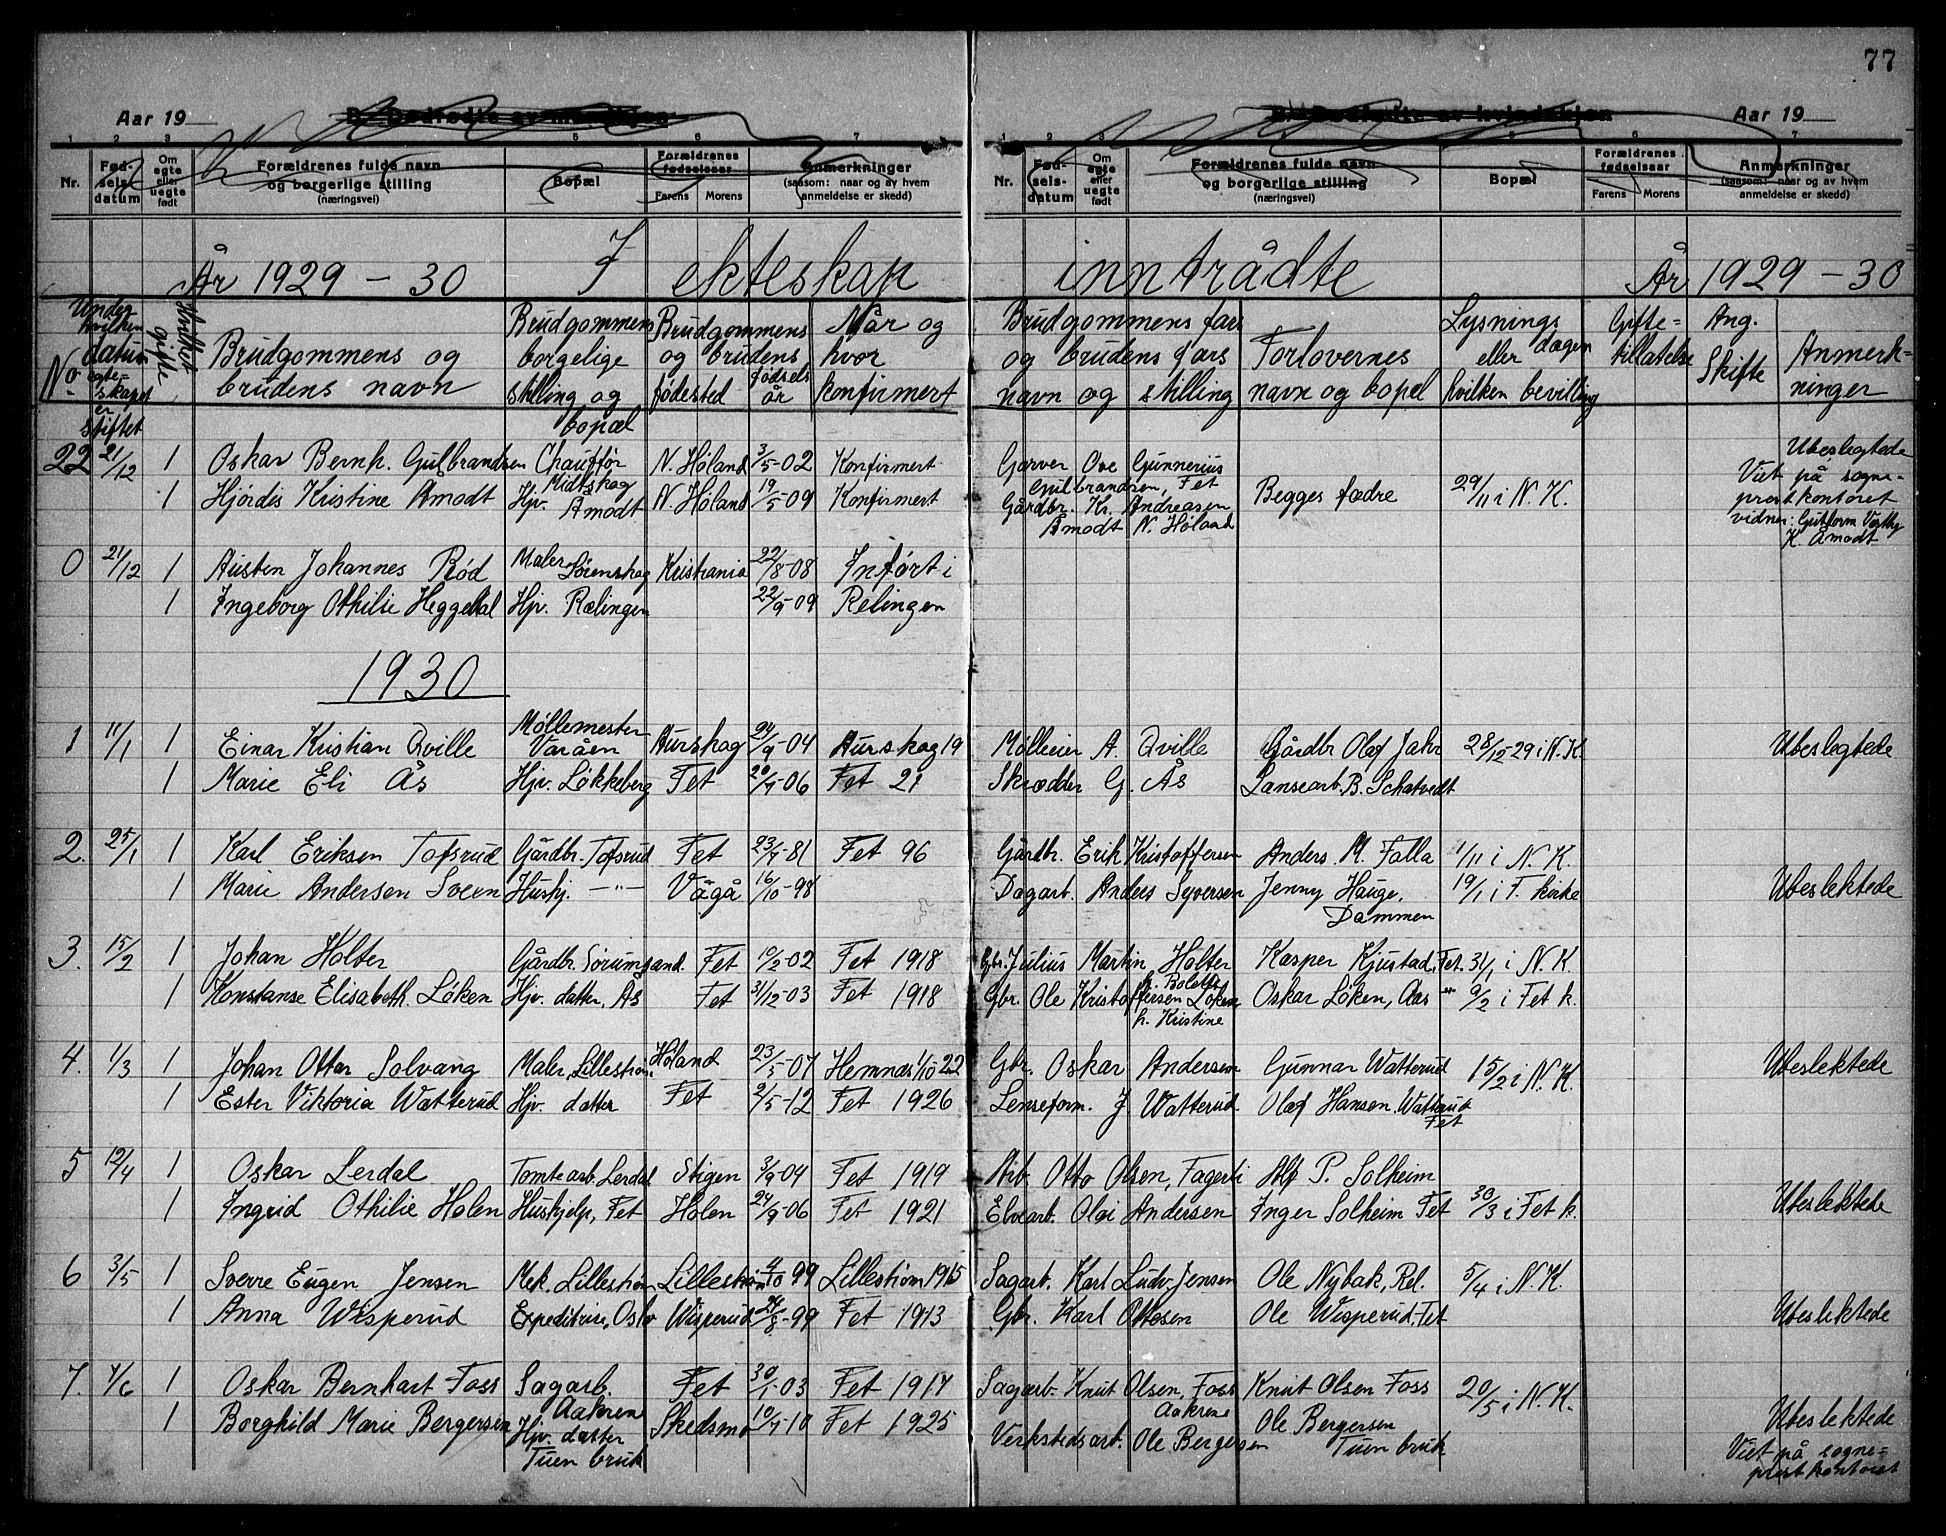 77
Aar 19 B. Dødfødte av mandkjøn. B. Dødfødte av kvindekjøn Aar 19
1 2 3 5 6 7 1 2 3 5 6 7
Nr. Fød-selsdatum Om egte eller uegte født Forældrenes fulde navn og borgerlige stilling (næringsvei) Bopæl Forældrenes fødselsaar Farens Morens Anmerkninger (saasom: naar og av hvem anmeldelse er skedd)
Nr. Fød-sels-datum Om egte eller uegte født Forældrenes fulde navn og borgerlige stilling (næringsvei) Bopæl Forældrenes fødselsaar Farens Morens Anmerkninger (saasom: naar og av hvem anmeldelse er skedd)
År 1929 – 30 I ekteskap inntrådte År 1929 – 30
No Under hvilken datum egte=skapet er stiftet Brudgommens og brudens navn Brudgommens borgelige stilling og bopæl Brudgommens og brudens fødested fødsels år Når og hvor konfirmert
Brudgommens fars og brudens fars navn og stilling Forlovernes navn og bopel Lysnings dagen eller hvilken bevilling Gifte=tillatelse Ang. Skifte Anmerk=ninger
22 21/12 1 Oskar Bernh. Gulbrandsen Chauffør Midtskog N. Høland 3/5-02 Konfirmert Garver Ove Gunnerius Gulbrandsen, Fet
1 Hjördis Kristine Åmodt Hjv. Åmodt N. Høland 19/5-09 Konfirmert Gårdbr. Kr. Andreasen Åmodt N. Høland Begges fædre 29/11 i N. K. Ubeslegtede Viet på sogne=prestkontoret vidner: Guttorm K. Åmodt
0 21/12 1 Austen Johannes Rød Maler Lørenskog Kristiania 22/8-08 Inført i
1 Ingeborg Othilie Heggedal Hjv. Rælingen 22/9-09 Relingen
1930
1 11/1 1 Einar Kristian Qville Møllemester Varåen Aurskog 24/9-04 Aurskog 19 Mølleier A. Qville Gårdbr Olaf Jahr 28/12 29 i N. K. Ubeslegtede
1 Marie Eli Ås Hjv. Løkkeberg Fet 20/7-06 Fet 21 Skrædder G. Ås Lansearb. B. Schatvedt
2. 25/1 1 Karl Eriksen Tofsrud Gårdbr. Tofsrud Fet 23/7-81 Fet 96 Gårdbr. Erik Kristoffersen Anders M. Falla 1/11 i N. K.
1 Marie Andersen Sveen Hushj. – " – Vågå 16/10-98 Dagarb. Anders Syversen Jenny Hauge, Dammen 19/1 i F. kirke Ubeslektede
3. 15/2 1 Johan Holter Gårdbr. Sørumsand. Fet 10/2-02 Fet 1918 Gbr. Julius Martin Holter h. Bolette Kasper Kjustad, Fet. 31/1 i N. K.
1 Konstanse Elisabeth Løken Hjv. datter, Ås Fet 31/12-03 Fet 1918 Gbr. Ole Kristoffersen Løken h. Kristine Oskar Løken, Aas " 9/2 i Fet k.
4. 1/3 1 Johan Otter Solvang Maler, Lillestrøm Høland 23/5-07 Hemnæs 1/10 22 Gbr. Oskar Andersen Gunnar Watterud 15/2 i N. K. Ubeslektede
1 Ester Viktoria Watterud Hjv. datter Fet 2/5-12 Fet 1926 Lenseform. J Watterud Olaf Hansen Watterud Fet
5 12/4 1 Oskar Lerdal Tomtearb. Lerdal Stigen 3/9-04 Fet 1919 Arb. Otto Olsen, Fagerli Alf P. Solheim
1 Ingrid Othilie Holen Hushjelp, Fet Holen 24/9-06 Fet 1921 Elvearb. Olai Andersen Inger Solheim Fet 30/3 i Fet k. Ubeslektede
6 3/5 1 Sverre Eugen Jensen Mek. Lillestrøm Lillestrøm 4/10 99 Lillestrøm 1915 Sagarb. Karl Ludv. Jensen Ole Nybak, Rel. 5/4 i N. K.
1 Anna Wisperud Expeditrise, Oslo Wisperud 26/8-99 Fet 1913 Gbr. Karl Ottesen Ole Wisperud, Fet Ubeslektede
7. 7/6 1 Oskar Bernhart Foss Sagarb. Aakrene Fet 30/1-03 Fet 1917 Sagarb. Knut Olsen, Foss Aakrene Knut Olsen Foss 20/5 i N. K.
1 Borghild Marie Bergersen Hjv. datter Tuen bruk Skedsmo 10/7-10 Fet 1925 Verkstedsarb. Ole Bergersen Ole Bergersen Tuen bruk Ubeslektede Viet på sogne=prestkontoret